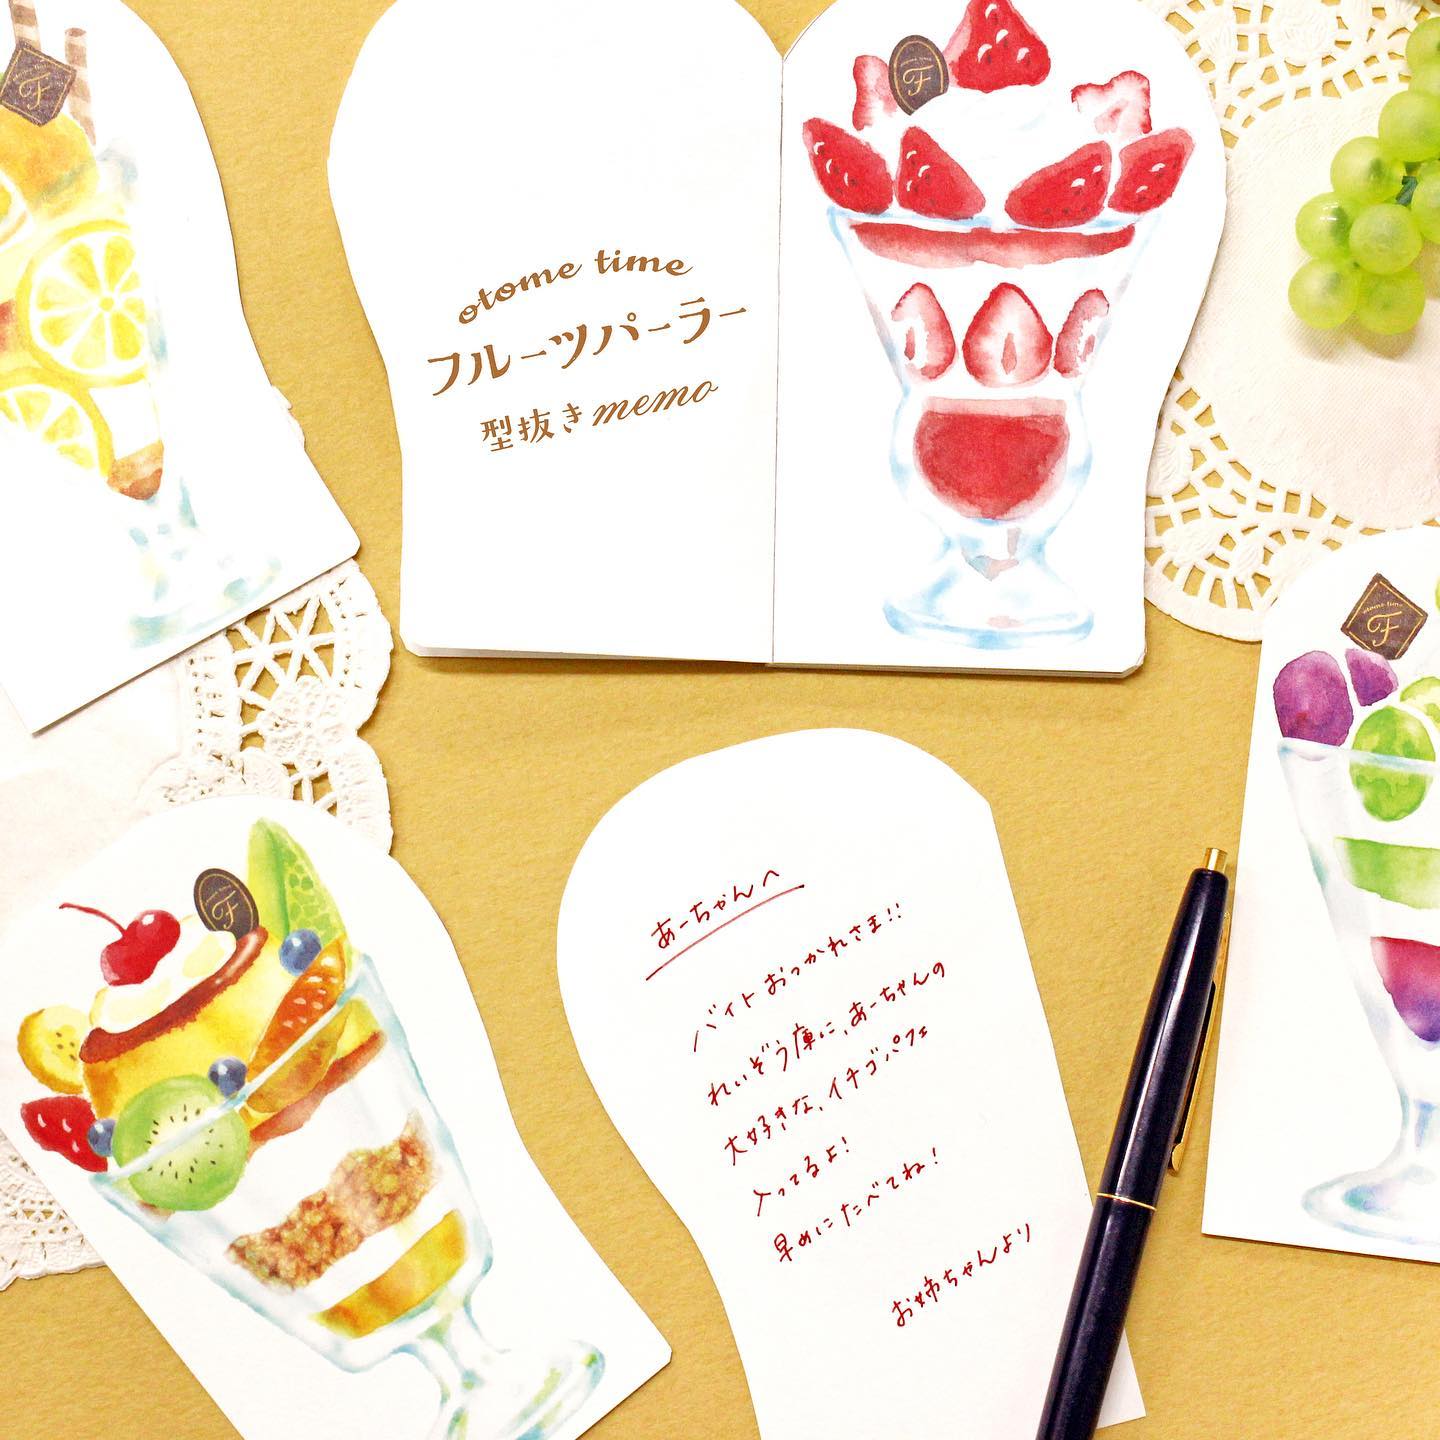 otome time
フルーツパーラー
型抜きmemo
F
F
otome time
F
F
あーちゃんへ
バイトおつかれさま!!
れいぞう庫に、あーちゃんの
大好きな、イチゴパフェ
入ってるよ!
早めにたべてね!
お姉ちゃんより